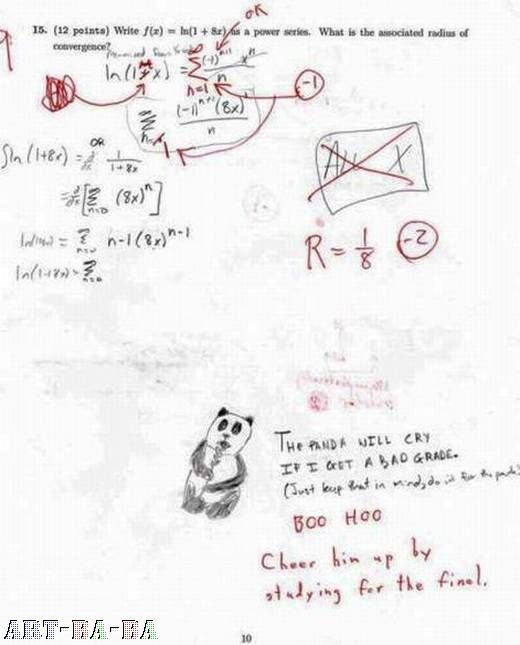 OK
15. (12 points) Write f(x) = ln(1 + 8x) as a power series. What is the associated radius of
convergence?
9
ln(1+x) = Σ n=1 (-1)^(n+1) x^n / n
-1
Σ n=1 (-1)^(n+1) (8x)^n / n
OR
∫ln(1+8x) = d/dx 1/(1+8x)
= d/dx [Σ n=0 (8x)^n]
= Σ n=0 n-1(8x)^(n-1)
ln(1+8x) = Σ n=0
All X
R = 1/8
-2
THE PANDA WILL CRY
IF I GET A BAD GRADE.
(Just keep that in mind, do it for the panda)
BOO HOO
Cheer him up by
studying for the final.
ART-BA-BA
10